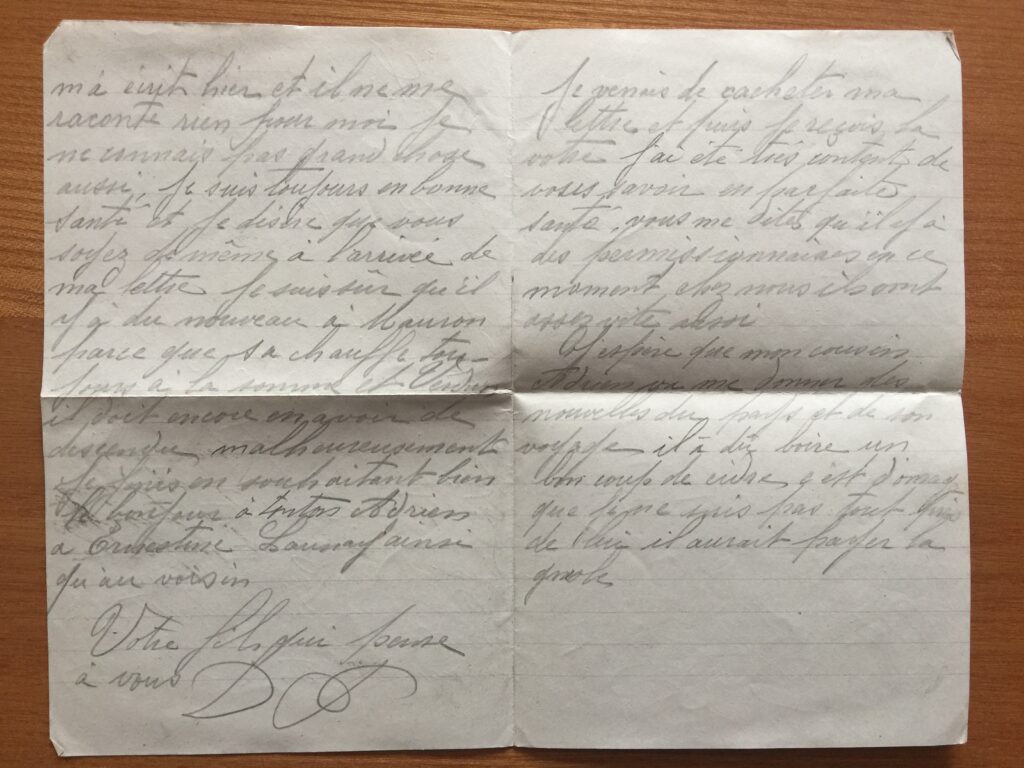 m'a écrit hier et il ne me
raconte rien pour moi Je
ne connais pas grand chose
aussi, Je suis toujours en bonne
santé et Je désire que vous
soyez de même à l'arrivée de
ma lettre Je suis sûr qu'il
y a du nouveau à Mauron
parce que sa chauffe tou-
jours à la somme et Verdun
il doit encore en avoir de
descendu malheureusement
Je finis en souhaitant bien
le bonjour à tonton Adrien
a Ernestine Launay ainsi
qu'au voisin
Votre fils qui pense
à vous
Je venais de cacheter ma
lettre et puis Je reçois la
votre J'ai été très content de
vous savoir en parfaite
santé, vous me dites qu'il y à
des permissionnaires en ce
moment chez nous ils sont
assez vite aussi
J'espère que mon cousin
Adrien va me donner des
nouvelles du pays et de son
voyage il à dû boire un
bon coup de cidre c'est domag
que Je ne suis pas tout
de lui il aurait payer la
gnole